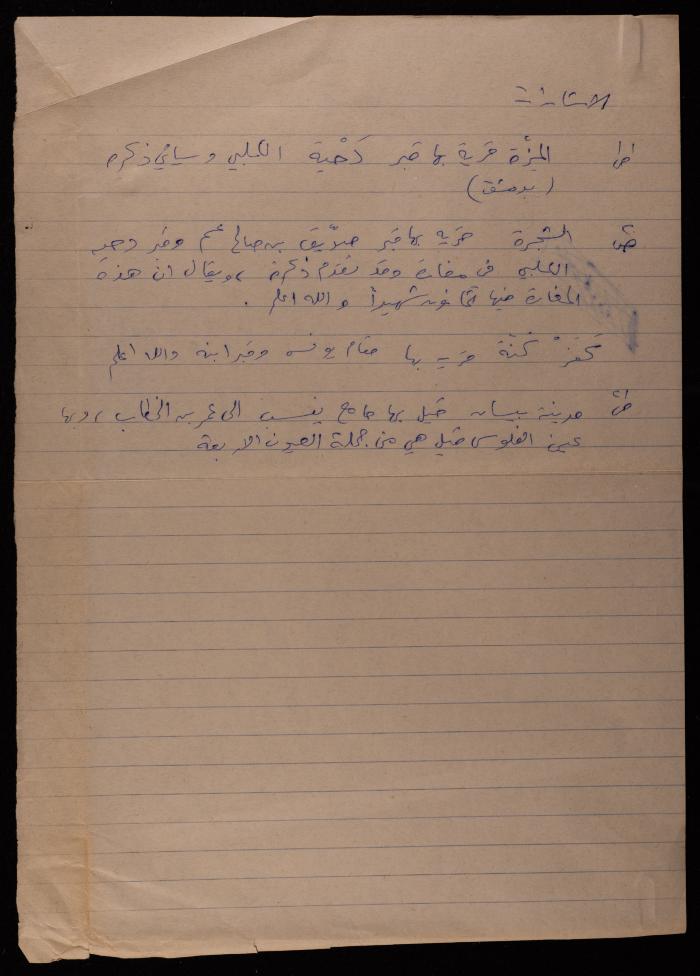 الاشارات
المِزّة قرية بها قبر دَحْية الكلبي وسيأتي ذكره
(بدمشق)
الشجرة قريه بها قبر صدّيق بن صالح عم وقبر دحيه
الكلبي في مغارة وقد تقدم ذكره ، ويقال ان هذه
المغارة فيها ثمانون شهيداً والله اعلم .
كَفَرْ كَنّة قريه بها مقام يونس وقبر ابنه والله اعلم
مدينة بيسان قيل بها جامع ينسب الى عمر بن الخطاب ، وبها
عين الفلوس قيل هي من جملة العيون الاربعة